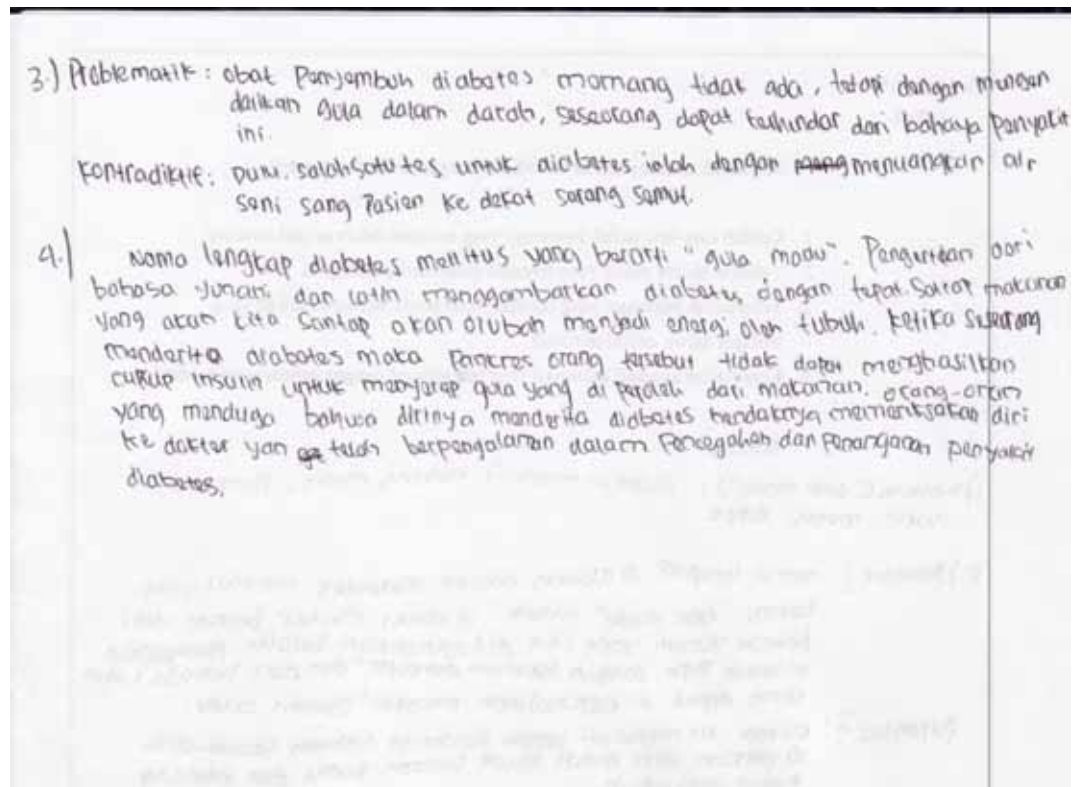 3.) Problematik : obat Penyembuh diabetes memang tidak ada, tetapi dengan mengen
dalikan gula dalam darah, seseorang dapat terhindar dari bahaya Penyakit
ini.
Kontradiktif : Dulu, salah satu tes untuk diabetes ialah dengan menuangkan air
seni sang Pasien ke dekat sarang semut.
4.) Nama lengkap diabetes melitus yang berarti "gula madu". Pengertian dari
bahasa yunani dan latin menggambarkan diabetes dengan tepat. Setiap makanan
yang akan kita Santap akan dirubah menjadi energi oleh tubuh. ketika seseorang
menderita diabetes maka Pancres orang tersebut tidak dapat menghasilkan
cukup insulin untuk menyerap gula yang di peroleh dari makanan. orang-oran
yang menduga bahwa dirinya menderita diabetes hendaknya memeriksakan diri
ke dokter yan telah berpengalaman dalam Pencegahan dan Penanganan penyakit
diabetes.